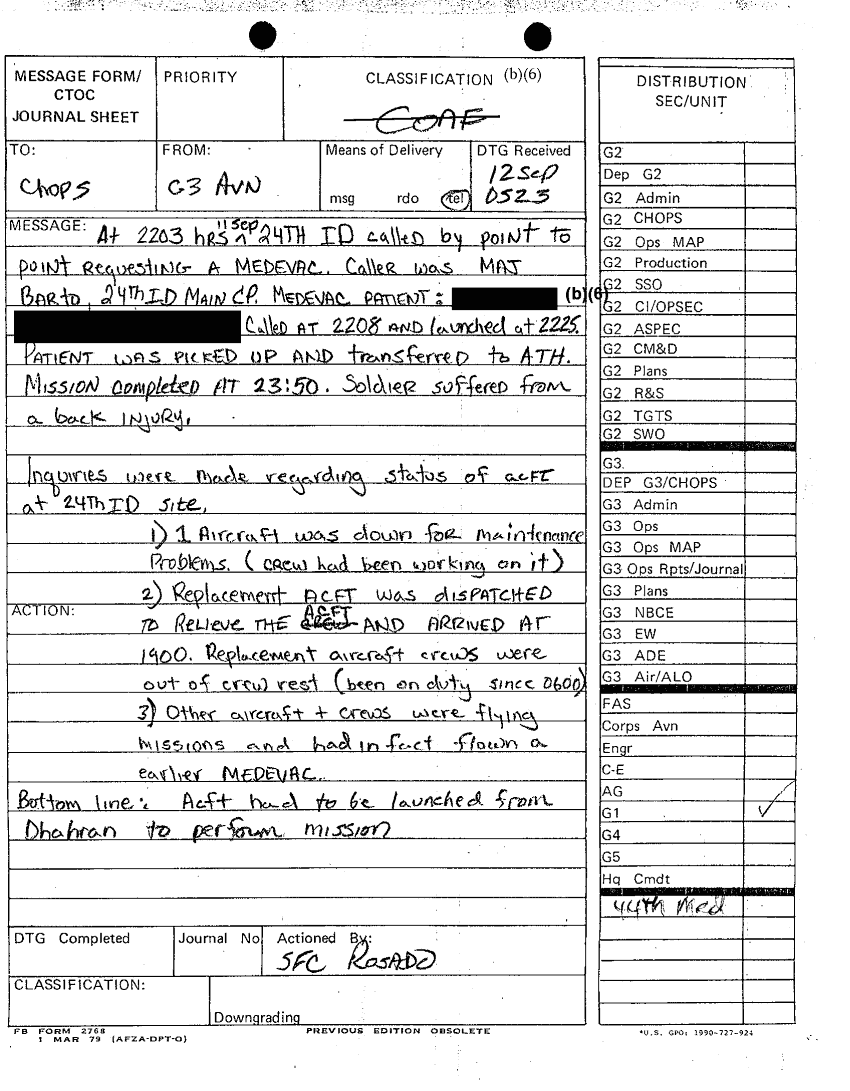 MESSAGE FORM/
CTOC
JOURNAL SHEET
PRIORITY
CLASSIFICATION (b)(6)
CONF
TO:
Chops
FROM:
G3 AVN
Means of Delivery
msg rdo tel
DTG Received
12 Sep
0523
MESSAGE: At 2203 hrs 11 Sep 24TH ID called by point to
point Requesting A MEDEVAC. Caller was MAJ
BARto, 24th ID MAIN CP. MEDEVAC PATIENT: (b)(6)
Called AT 2208 AND launched at 2225.
PATIENT WAS PICKED UP AND transferred to ATH.
Mission completed AT 23:50. Soldier suffered from
a back INJURY.
Inquiries were made regarding status of acft
at 24Th ID site.
1) 1 Aircraft was down for maintenance
Problems. (crew had been working on it)
2) Replacement ACFT was DISPATCHED
ACTION:
TO RELIEVE THE ACFT AND ARRIVED AT
1900. Replacement aircraft crews were
out of crew rest (been on duty since 0600)
3) Other aircraft + crews were flying
missions and had in fact flown a
earlier MEDEVAC.
Bottom line: Acft had to be launched from
Dhahran to perform mission
DTG Completed
Journal No
Actioned By:
SFC ROSADO
CLASSIFICATION:
Downgrading
FB FORM 2768
1 MAR 79 (AFZA-DPT-O)
PREVIOUS EDITION OBSOLETE
DISTRIBUTION
SEC/UNIT
G2
Dep G2
G2 Admin
G2 CHOPS
G2 Ops MAP
G2 Production
G2 SSO
G2 CI/OPSEC
G2 ASPEC
G2 CM&D
G2 Plans
G2 R&S
G2 TGTS
G2 SWO
G3.
DEP G3/CHOPS
G3 Admin
G3 Ops
G3 Ops MAP
G3 Ops Rpts/Journal
G3 Plans
G3 NBCE
G3 EW
G3 ADE
G3 Air/ALO
FAS
Corps Avn
Engr
C-E
AG
G1 ✓
G4
G5
Hq Cmdt
44th Med
*U.S. GPO: 1990-727-924